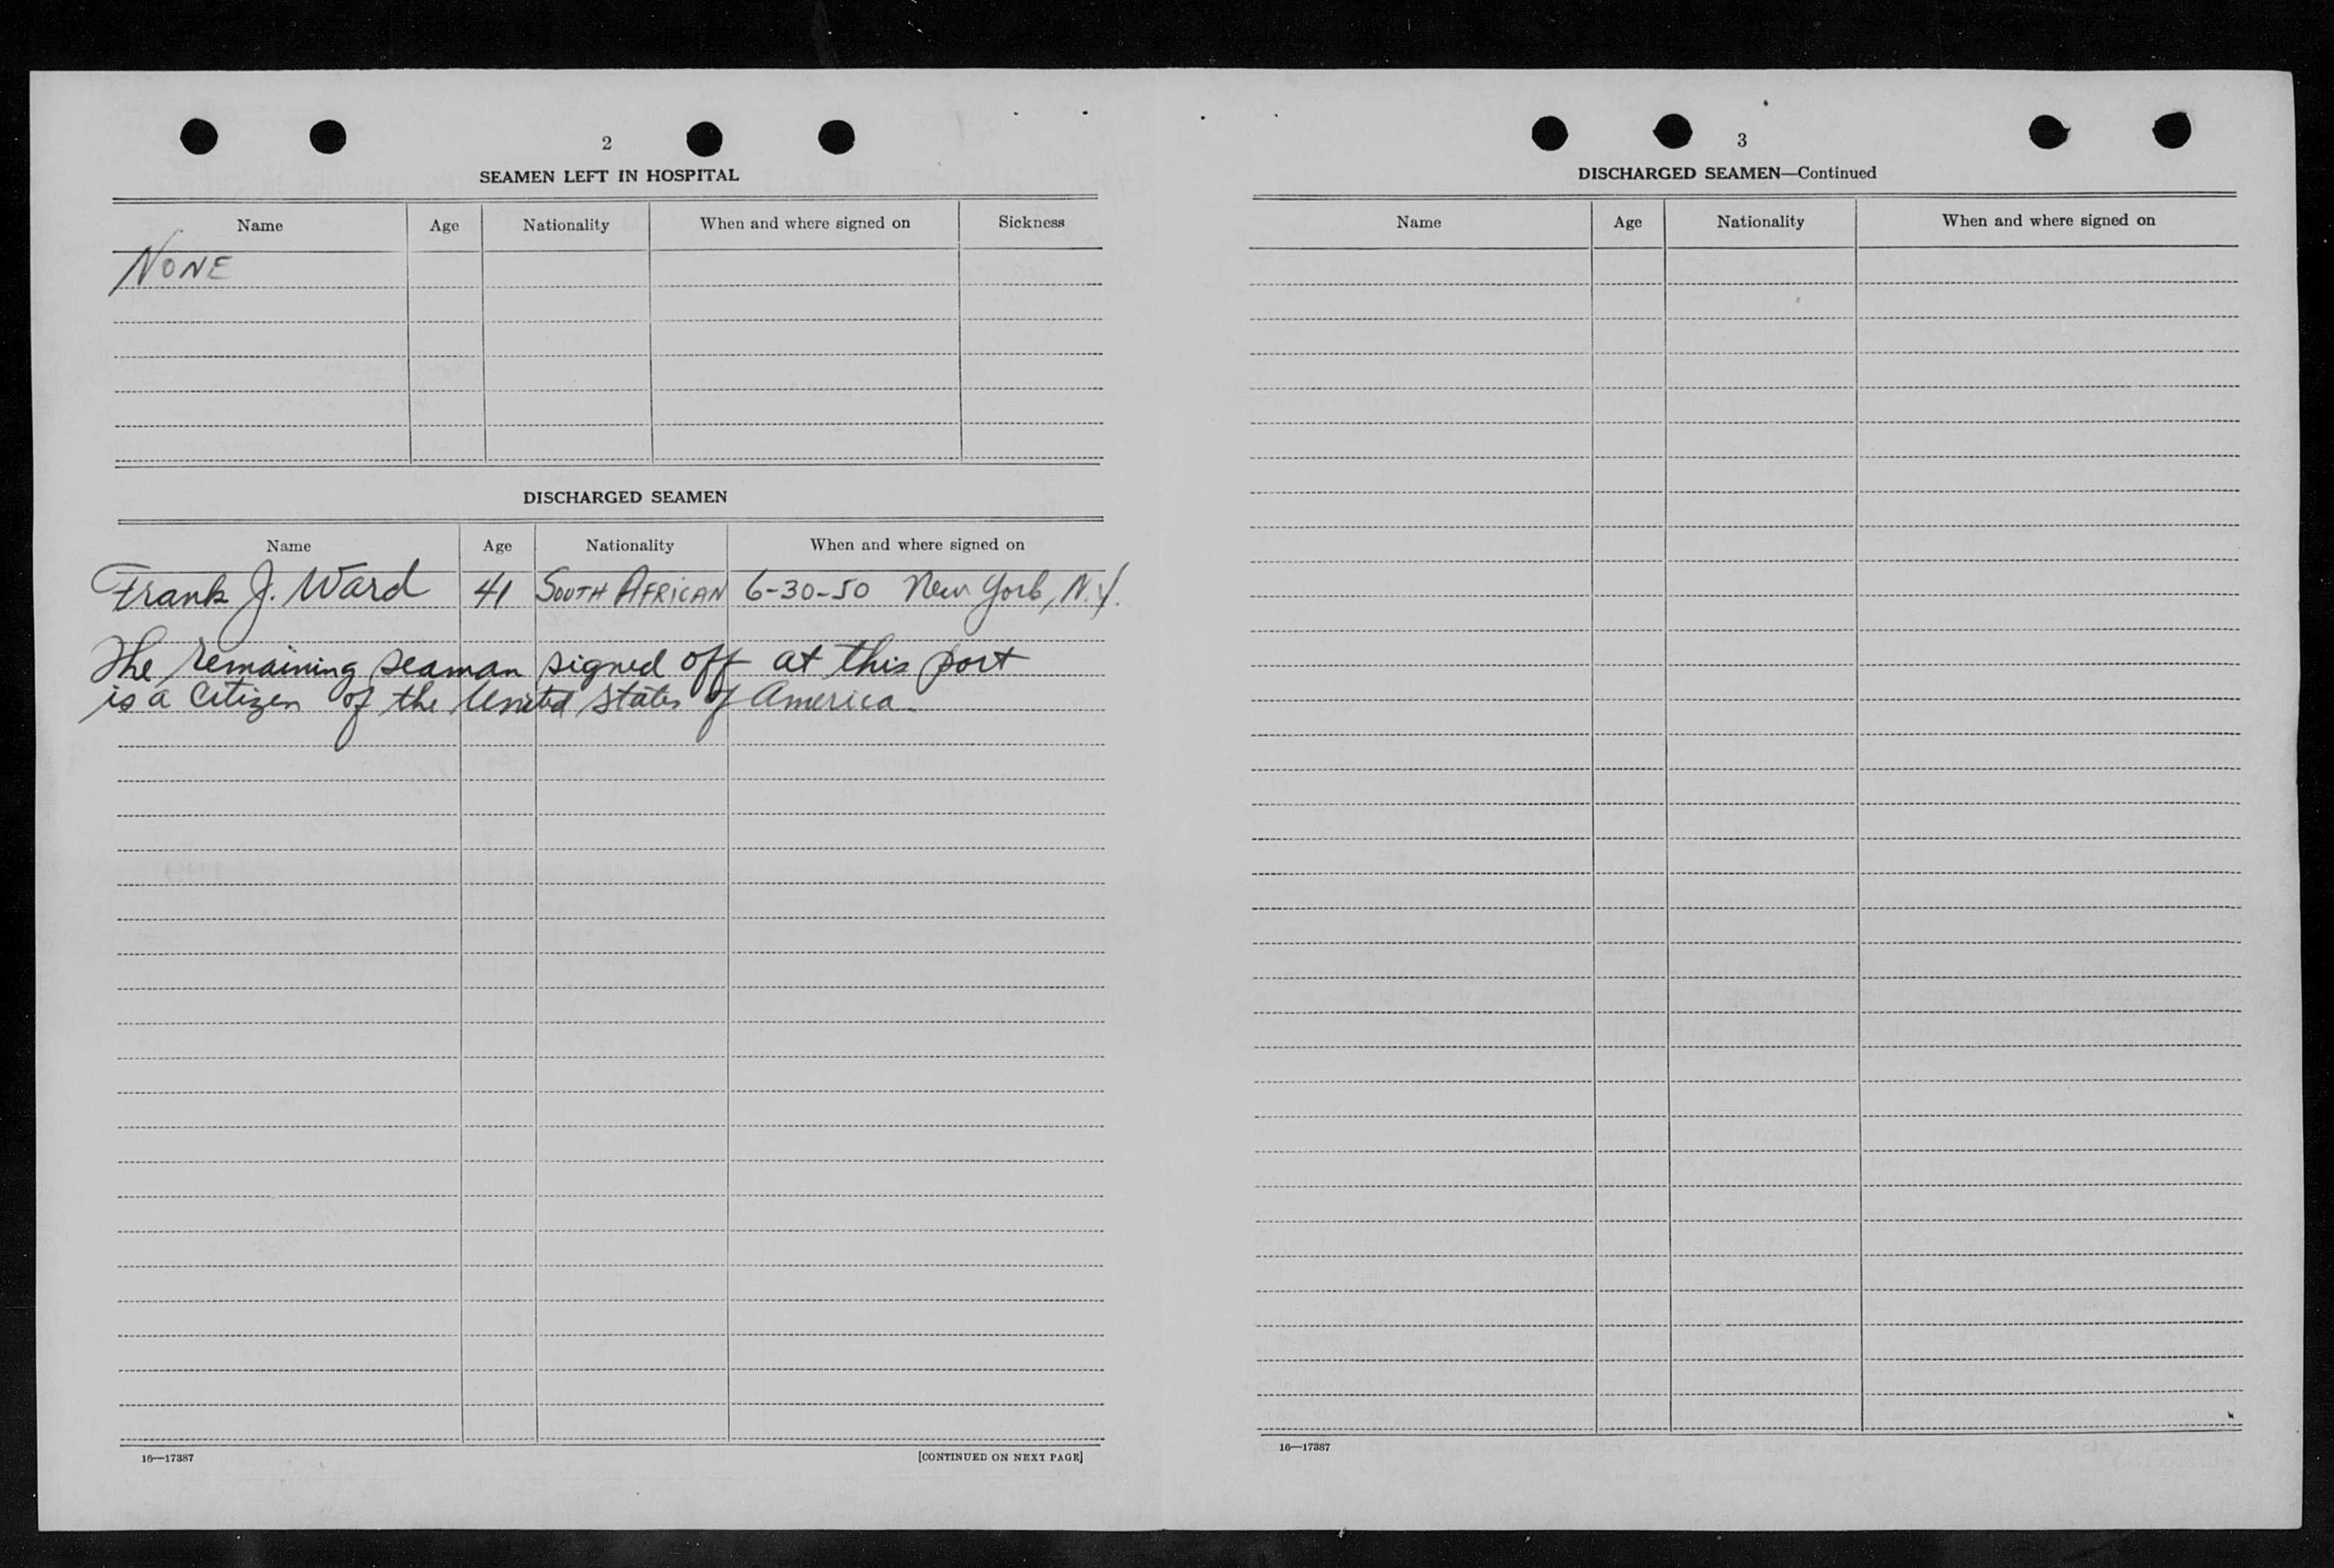 2
SEAMEN LEFT IN HOSPITAL
Name Age Nationality When and where signed on Sickness
NONE
DISCHARGED SEAMEN
Name Age Nationality When and where signed on
Frank J. Ward 41 SOUTH AFRICAN 6-30-50 New York, N.Y.
The remaining seaman signed off at this port
is a citizen of the United States of America.
16—17387 [CONTINUED ON NEXT PAGE]
3
DISCHARGED SEAMEN—Continued
Name Age Nationality When and where signed on
16—17387